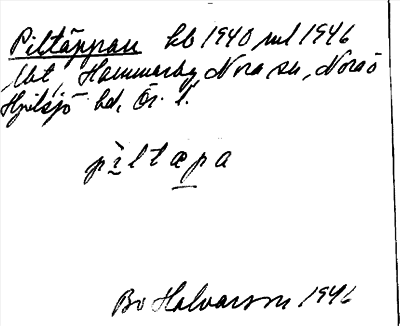 Piltäppan kb 1940 rul 1946
lht, Hammarby, Nora sn, Nora ö
Hjulsjö bd, Ör. l.
pìltæpa
Bo Halvarsson 1946